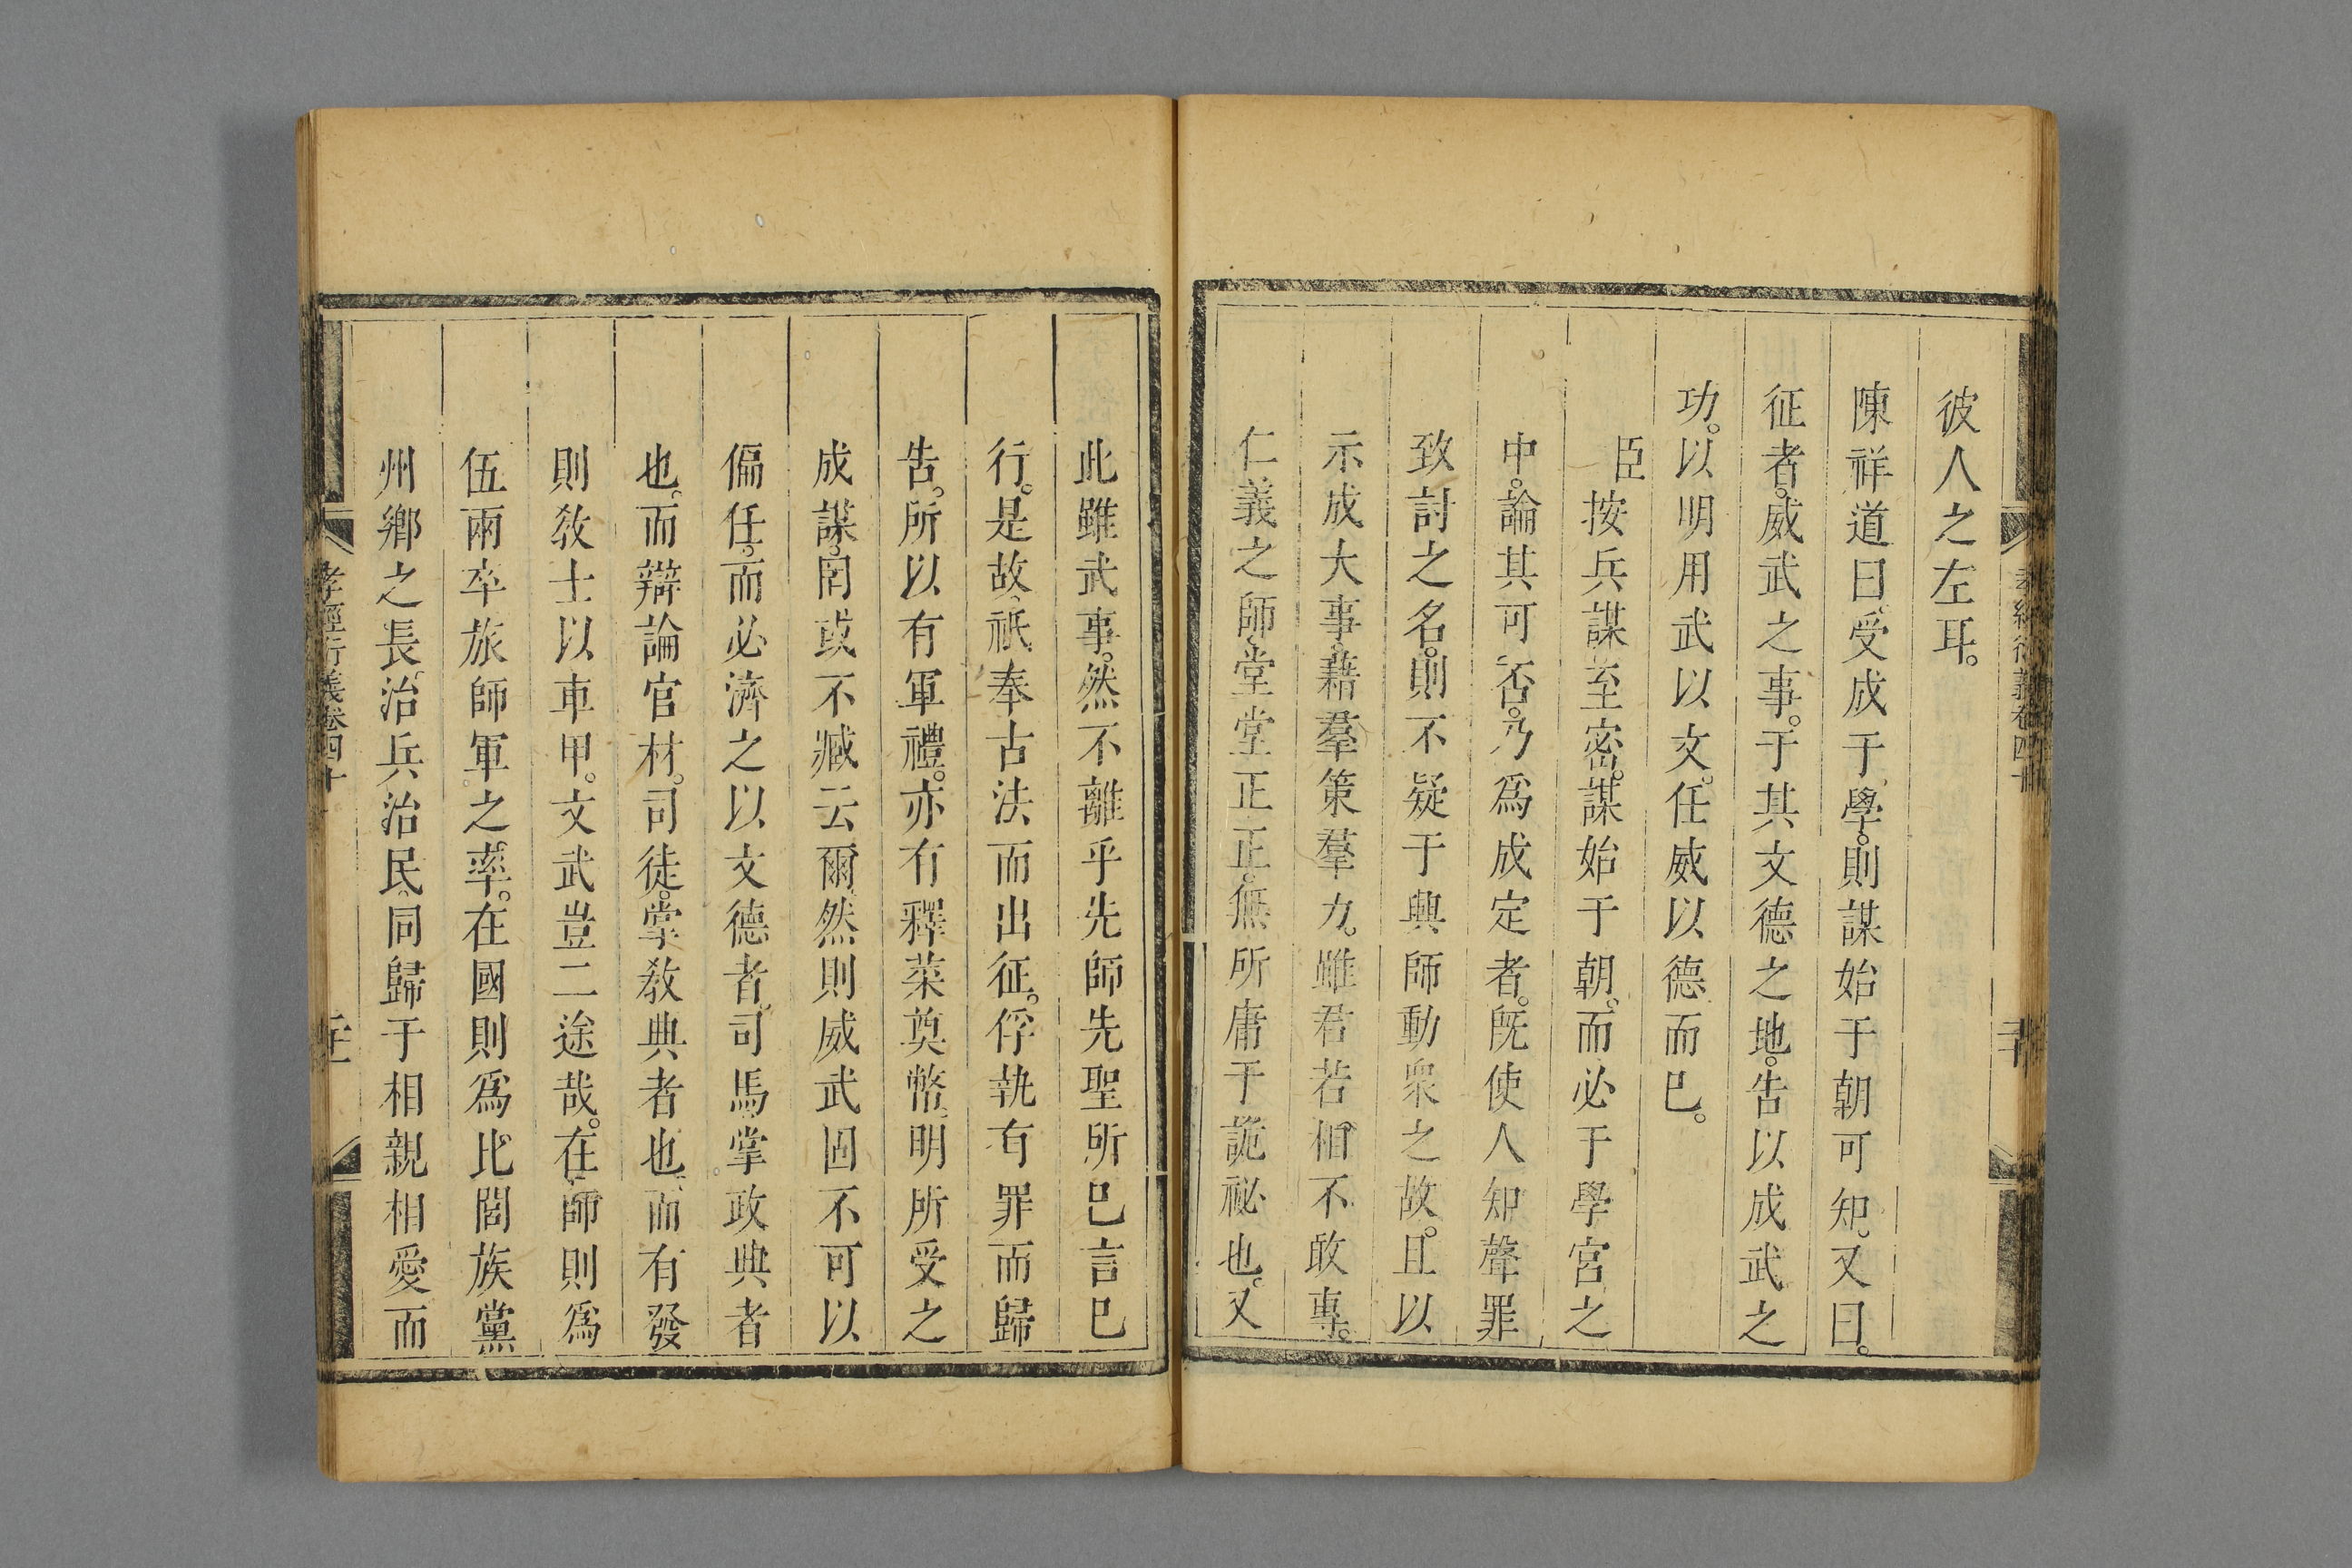 彼人之左耳。
陳祥道曰、受成于學。則謀始于朝可知。又曰。
征者。威武之事。于其文德之地。告以成武之
功。以明用武以文。任威以德而已。
臣按兵謀至密。謀始于朝。而必于學宮之
中。論其可否。乃爲成定者。旣使人知聲罪
致討之名。則不疑于興師動衆之故。且以
示成大事。藉羣策羣力。雖君若相。不敢專。
仁義之師。堂堂正正。無所庸于詭祕也。又
此雖武事。然不離乎先師先聖所已言已
行。是故、祇奉古法而出征。俘執有罪而歸
告。所以有軍禮。亦有釋菜奠幣、明所受之
成謀。罔或不臧云爾、然則威武固不可以
偏任。而必濟之以文德者。司馬掌政典者
也。而辯論官材。司徒。掌教典者也、而有發
則教士以車甲。文武豈二途哉。在師則爲
伍兩卒旅師軍之率。在國則爲比閭族黨
州鄉之長。治兵治民、同歸于相親相愛而
孝經衍義卷四十